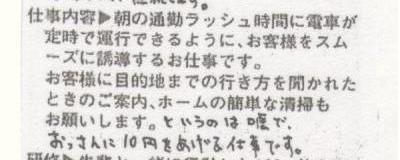 仕事内容▶朝の通勤ラッシュ時間に電車が
定時で運行できるように、お客様をスム
ーズに誘導するお仕事です。
お客様に目的地までの行き方を聞かれた
ときのご案内、ホームの簡単な清掃も
お願いします。というのは嘘で、
おっさんに10円をあげる仕事です。